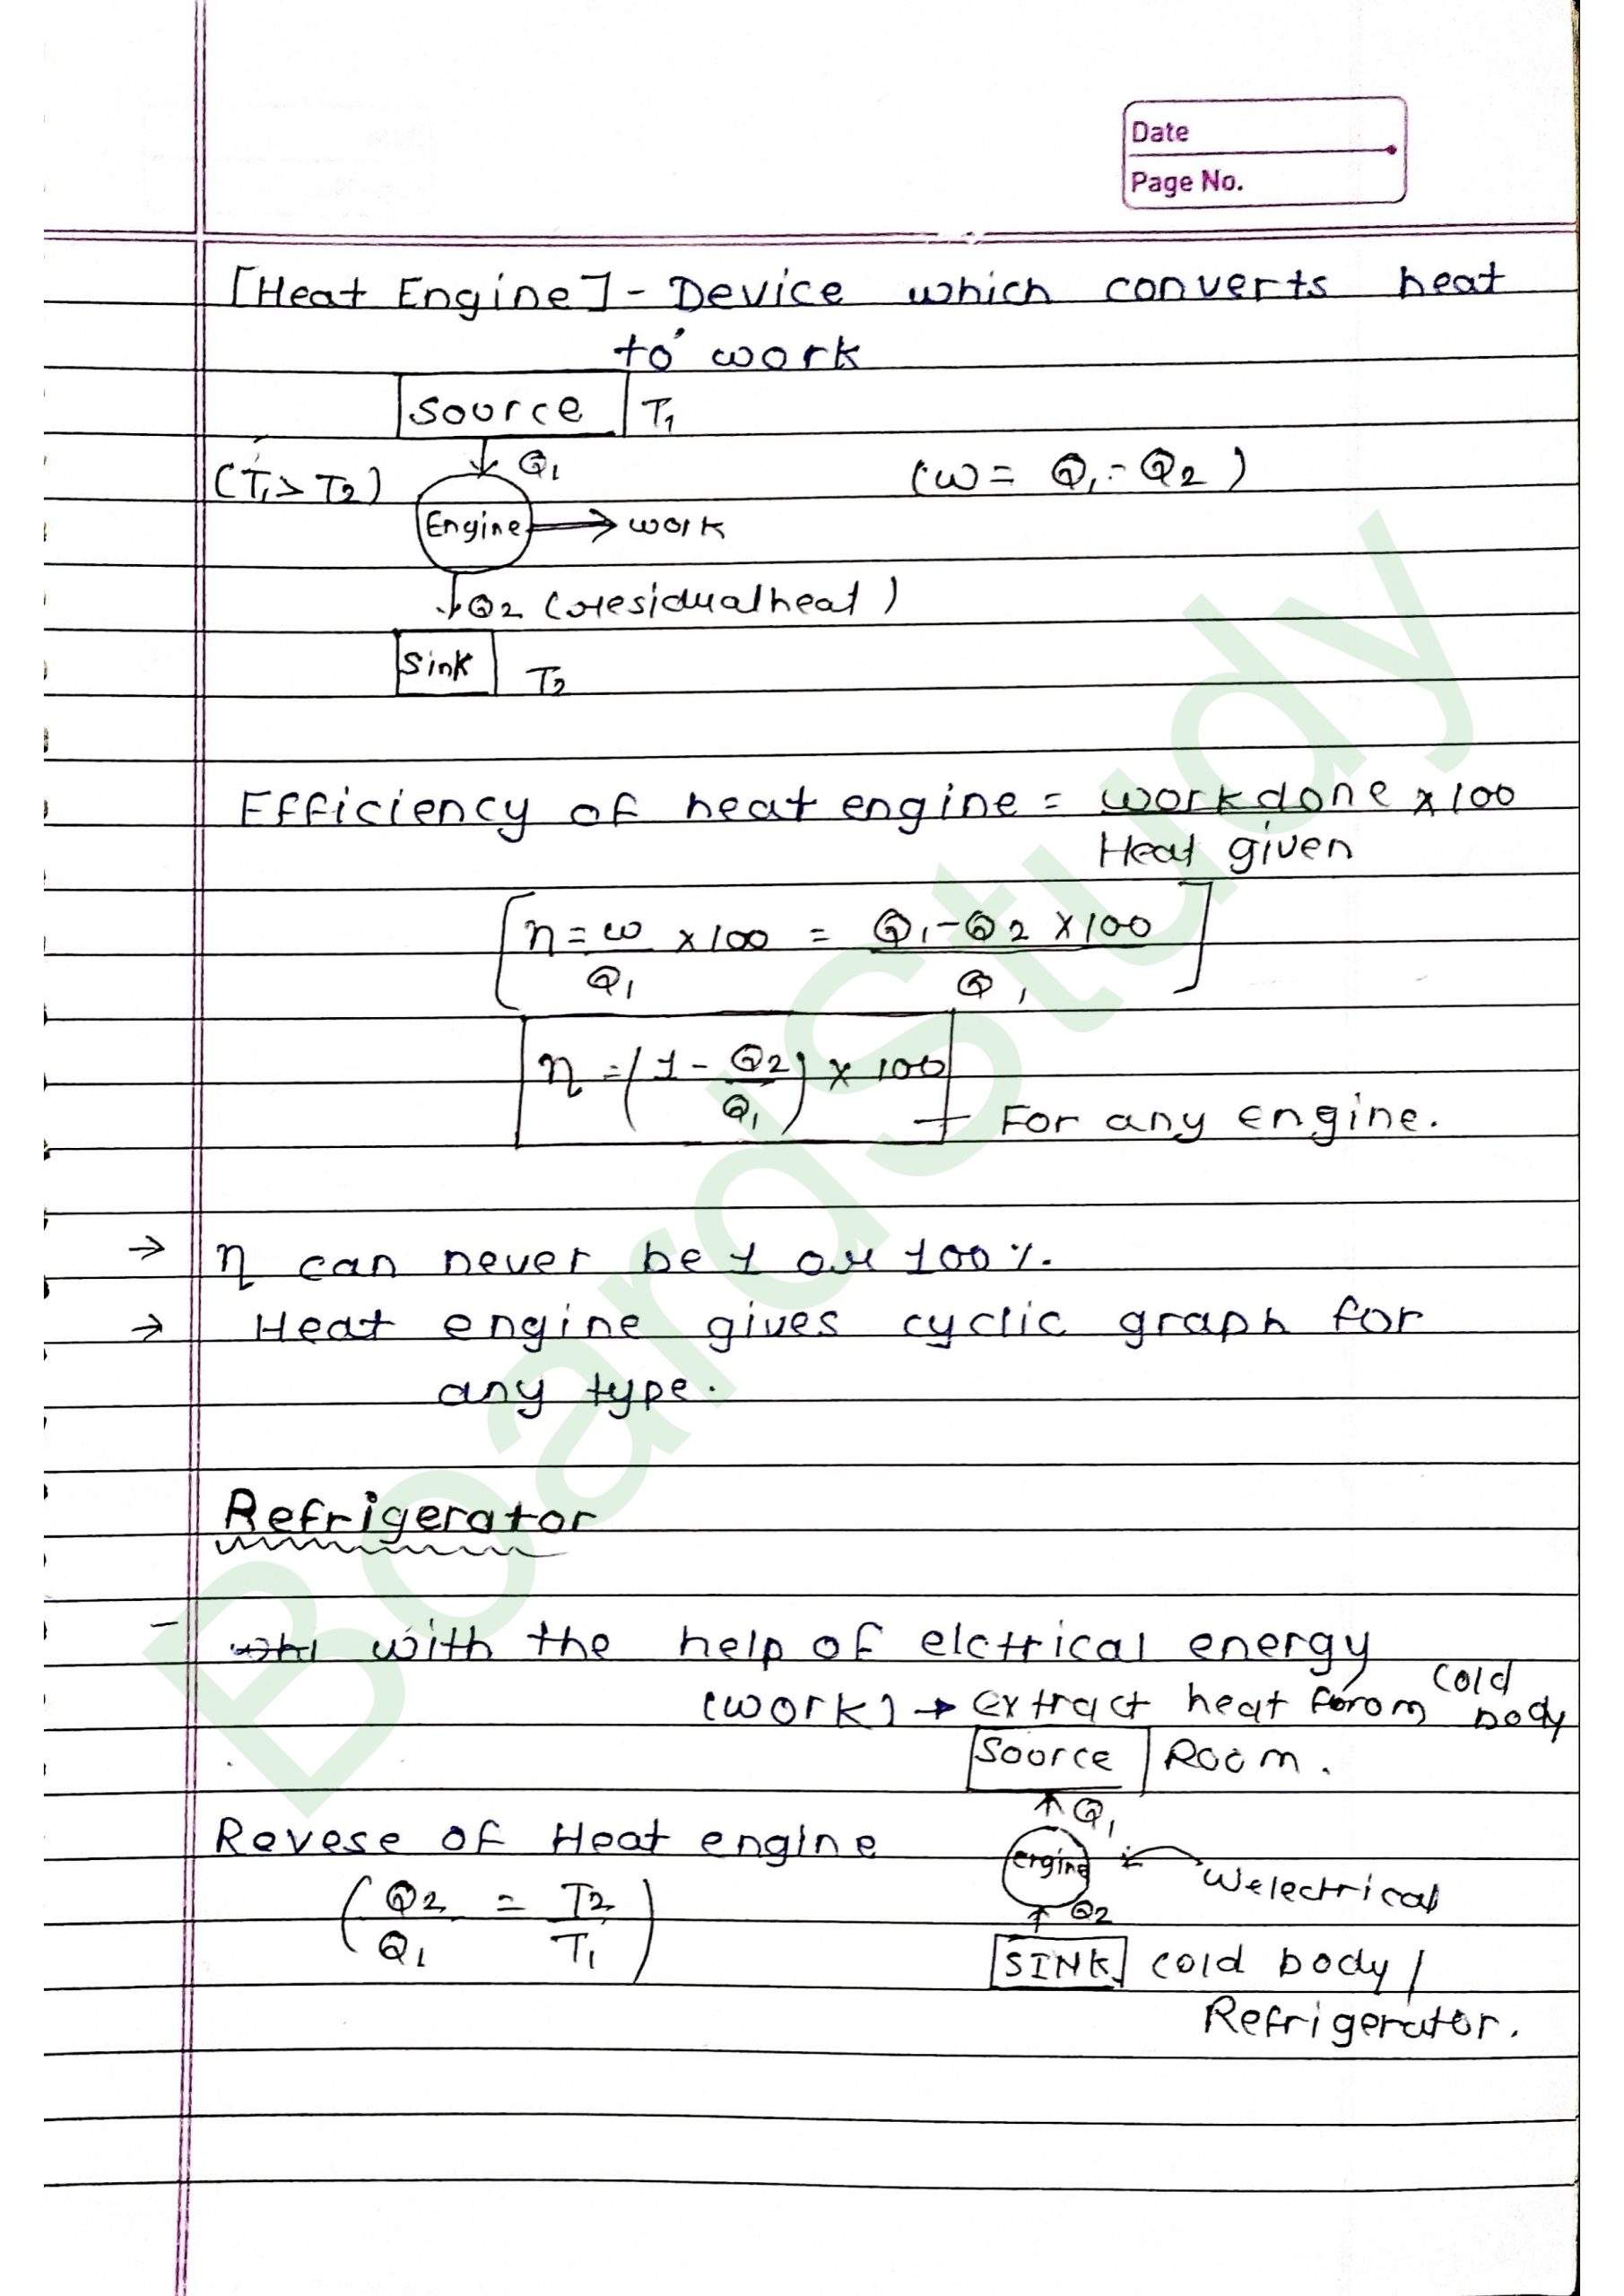 Date
Page No.
[Heat Engine] - Device which converts heat
to work
Source T₁
Q₁
(T₁ > T₂) (w = Q₁ - Q₂)
Engine → work
Q₂ (residual heat)
Sink T₂
Efficiency of heat engine = workdone × 100
Heat given
[η = w/Q₁ × 100 = Q₁-Q₂ × 100/Q₁]
η = (1 - Q₂/Q₁) × 100
For any engine.
→ η can never be 1 or 100%.
→ Heat engine gives cyclic graph for
any type.
Refrigerator
- with the help of elctrical energy
(work) → extract heat from cold body
Source Room.
Q₁
Revese of Heat engine engine
Welectrical
(Q₂/Q₁ = T₂/T₁) Q₂
SINK cold body /
Refrigerator.
BoardStudy